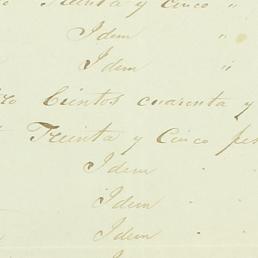 Treinta y Cinco "
Idem "
Idem "
Cientos cuarenta y
Treinta y Cinco pes
Idem "
Idem "
Idem "